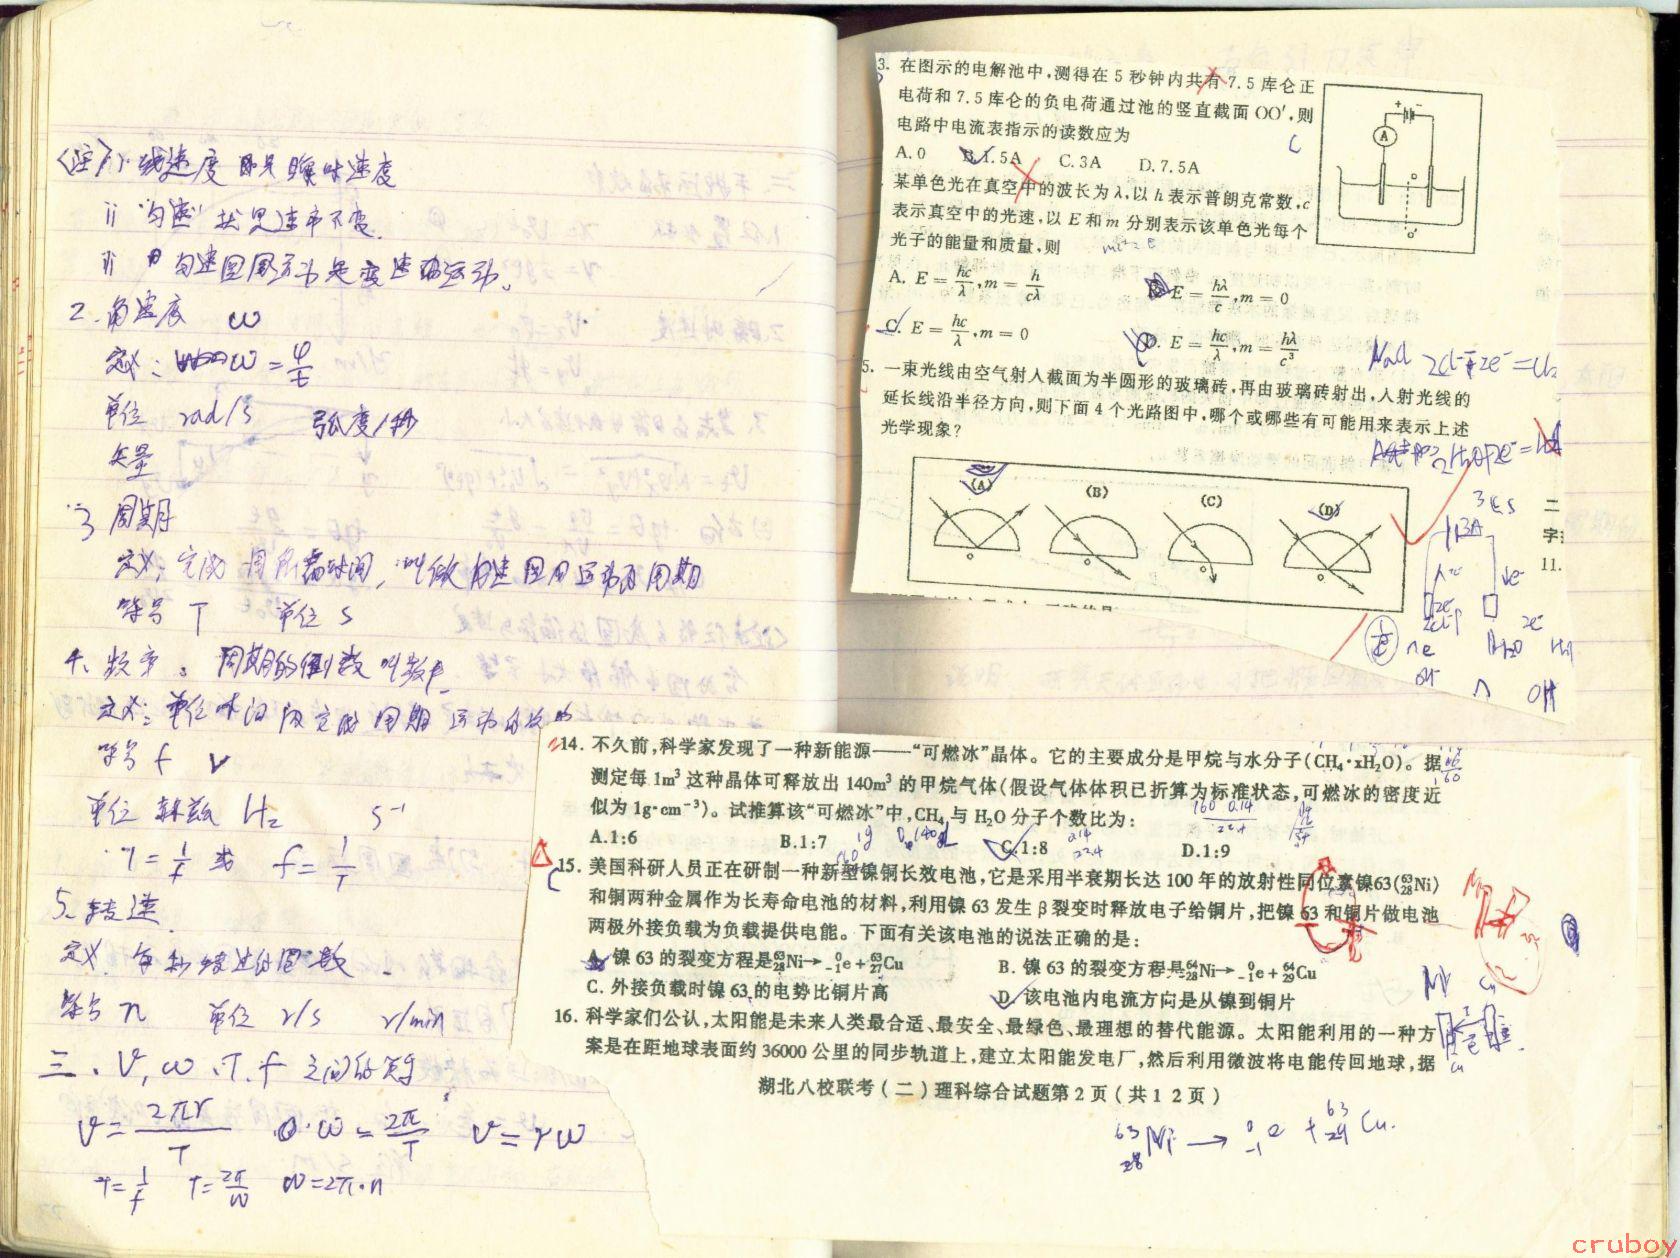 〈注〉i、线速度即是瞬时速度
ii "匀速"状是速率不变.
ii 匀速圆周运动是变速运动。
2.角速度 ω
定义: ω=φ/t
单位 rad/s 弧度/秒
矢量
3 周期
定义:完成一周所需时间,叫做匀速圆周运动的周期
符号 T 单位 s
4、频率。周期的倒数叫频率.
定义:单位时间内完成周期运动的次数
符号 f ν
单位 赫兹 Hz s⁻¹
T=1/f 或 f=1/T
5.转速
定义.每秒转过的圈数.
符号 n 单位 r/s r/min
三.V,ω.T.f 之间的关系
v=2πr/T ω=2π/T v=rω
T=1/f T=2π/ω ω=2π·n
3. 在图示的电解池中,测得在5秒钟内共有7.5库仑正
电荷和7.5库仑的负电荷通过池的竖直截面OO′,则
电路中电流表指示的读数应为
C
A.0 B.1.5A C.3A D.7.5A
+ -
A
o
o′
某单色光在真空中的波长为λ,以h表示普朗克常数,c
表示真空中的光速,以E和m分别表示该单色光每个
光子的能量和质量,则
A. E=hc/λ,m=h/cλ B. E=hλ/c,m=0
C. E=hc/λ,m=0 D. E=hc/λ,m=hλ/c³
5. 一束光线由空气射人截面为半圆形的玻璃砖,再由玻璃砖射出,人射光线的
延长线沿半径方向,则下面4个光路图中,哪个或哪些有可能用来表示上述
光学现象?
(A) (B) (C) (D)
o o o o
二
字
11.
3A
14. 不久前,科学家发现了一种新能源——“可燃冰”晶体。它的主要成分是甲烷与水分子(CH₄·xH₂O)。据
测定每1m³这种晶体可释放出140m³的甲烷气体(假设气体体积已折算为标准状态,可燃冰的密度近
似为1g·cm⁻³)。试推算该“可燃冰”中,CH₄与H₂O分子个数比为:
A.1:6 B.1:7 C.1:8 D.1:9
15. 美国科研人员正在研制一种新型镍铜长效电池,它是采用半衰期长达100年的放射性同位素镍63(⁶³₂₈Ni)
和铜两种金属作为长寿命电池的材料,利用镍63发生β裂变时释放电子给铜片,把镍63和铜片做电池
两极外接负载为负载提供电能。下面有关该电池的说法正确的是:
A. 镍63的裂变方程是⁶³₂₈Ni→⁰₋₁e+⁶³₂₇Cu B. 镍63的裂变方程是⁶⁴₂₈Ni→⁰₋₁e+⁶⁴₂₉Cu
C. 外接负载时镍63的电势比铜片高 D. 该电池内电流方向是从镍到铜片
16. 科学家们公认,太阳能是未来人类最合适、最安全、最绿色、最理想的替代能源。太阳能利用的一种方
案是在距地球表面约36000公里的同步轨道上,建立太阳能发电厂,然后利用微波将电能传回地球,据
湖北八校联考(二)理科综合试题第2页(共12页)
⁶³₂₈Ni→⁰₋₁e+⁶³₂₉Cu.
cruboy